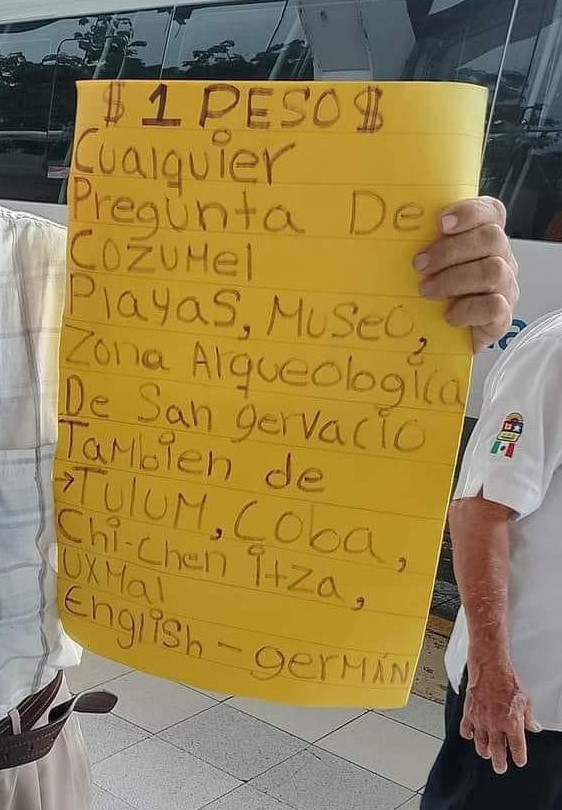 $ 1 PESO $
Cualquier
Pregunta De
Cozumel
Playas, Museo,
Zona Alqueologica
De San gervacio
Tambien de
→Tulum, Coba,
Chi-chen itza,
Uxmal
English - germán